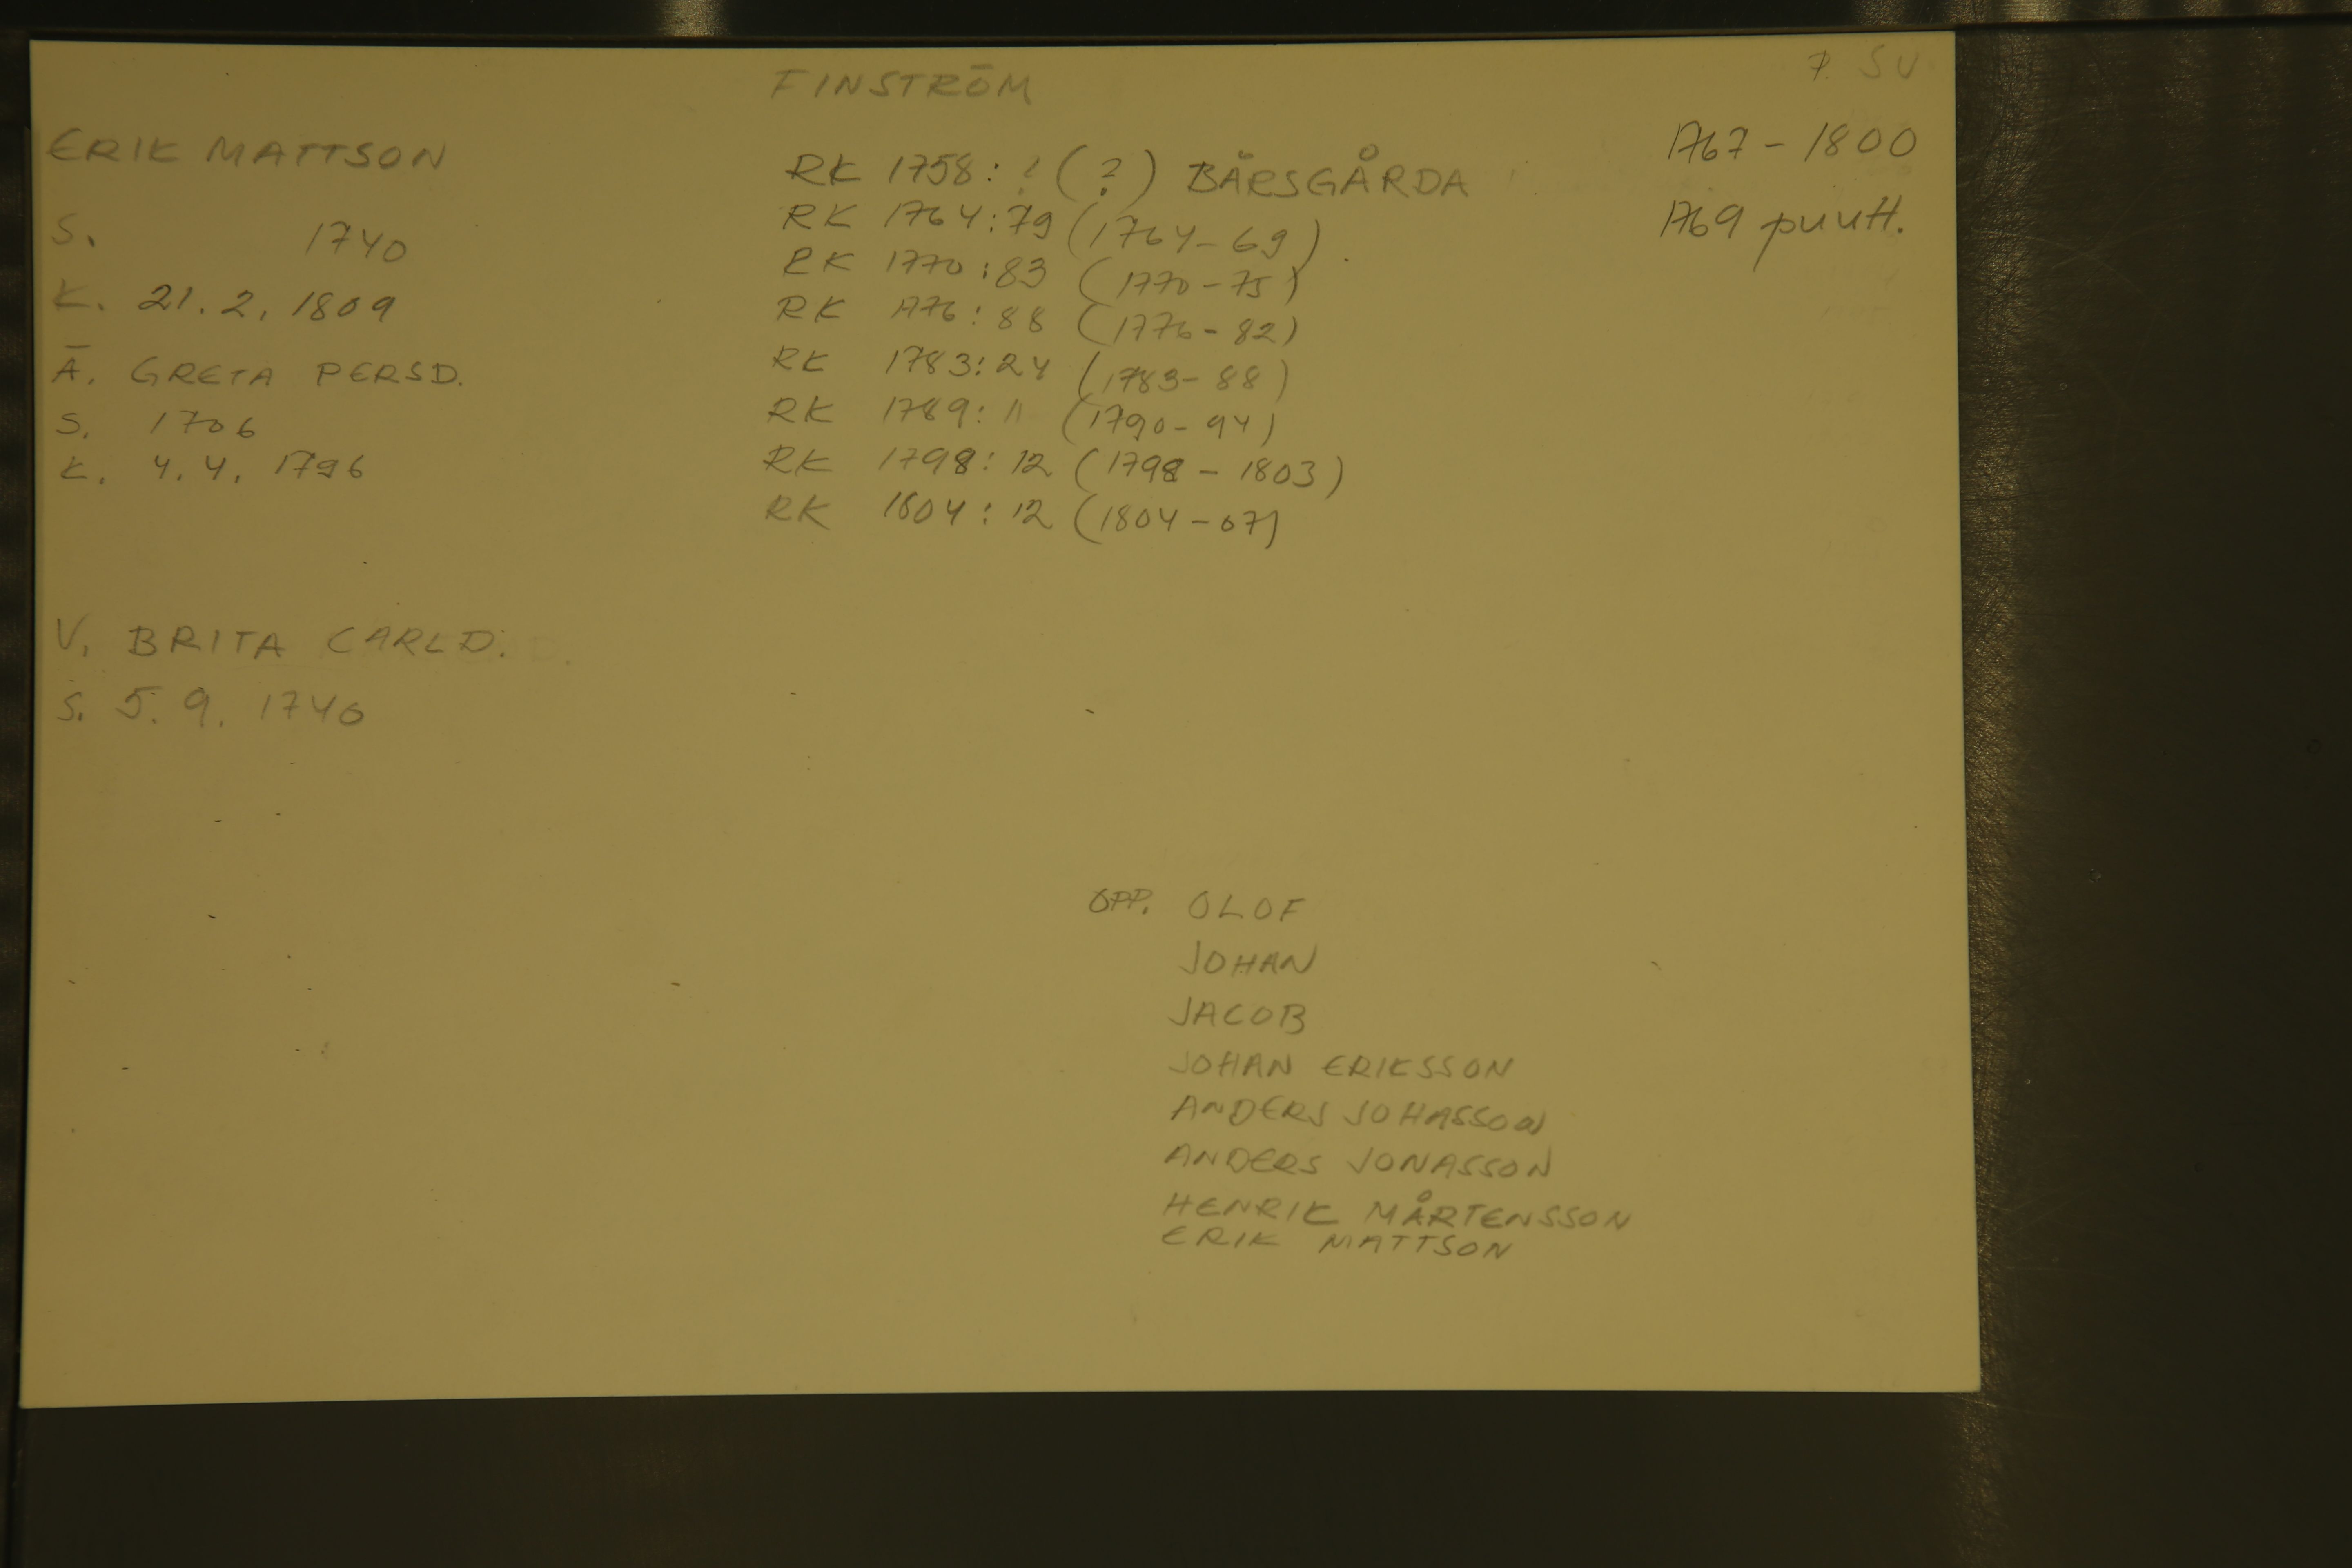 FINSTRÖM
7. SU
ERIK MATTSON
S. 1740
K. 21.2.1809
Ä. GRETA PERSD.
S. 1706
K. 4.4.1796
V. BRITA CARLD.
S. 5.9.1740
RK 1758: ? (?) BÄRSGÅRDA
RK 1764:79 (1764-69)
RK 1770:83 (1770-75)
RK 1776:88 (1776-82)
RK 1783:24 (1783-88)
RK 1789:11 (1790-94)
RK 1798:12 (1798-1803)
RK 1804:12 (1804-07)
1767-1800
1769 puutt.
OPP. OLOF
JOHAN
JACOB
JOHAN ERIKSSON
ANDERS JOHASSON
ANDERS JONASSON
HENRIK MÅRTENSSON
ERIK MATTSON